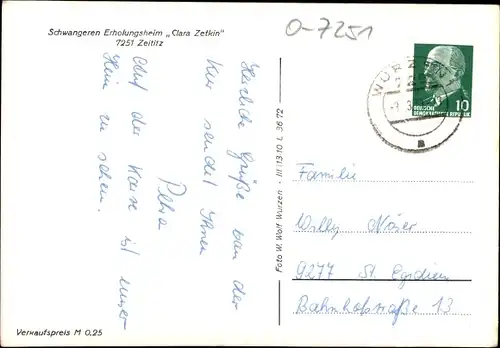 Schwangeren Erholungsheim „Clara Zetkin"
7251 Zeititz
0-7251
Herzliche Grüße von der
Kur sendet Ihnen
Petra
Auf der Karte ist unser
Heim zu sehen.
Verkaufspreis M 0,25
Foto W. Wolf Wurzen - III 13 10 L 36 72
WURZEN
10
DEUTSCHE
DEMOKRATISCHE REPUBLIK
Familie
Willy Nözer
9277 St. Egidien
Bahnhofstraße 13